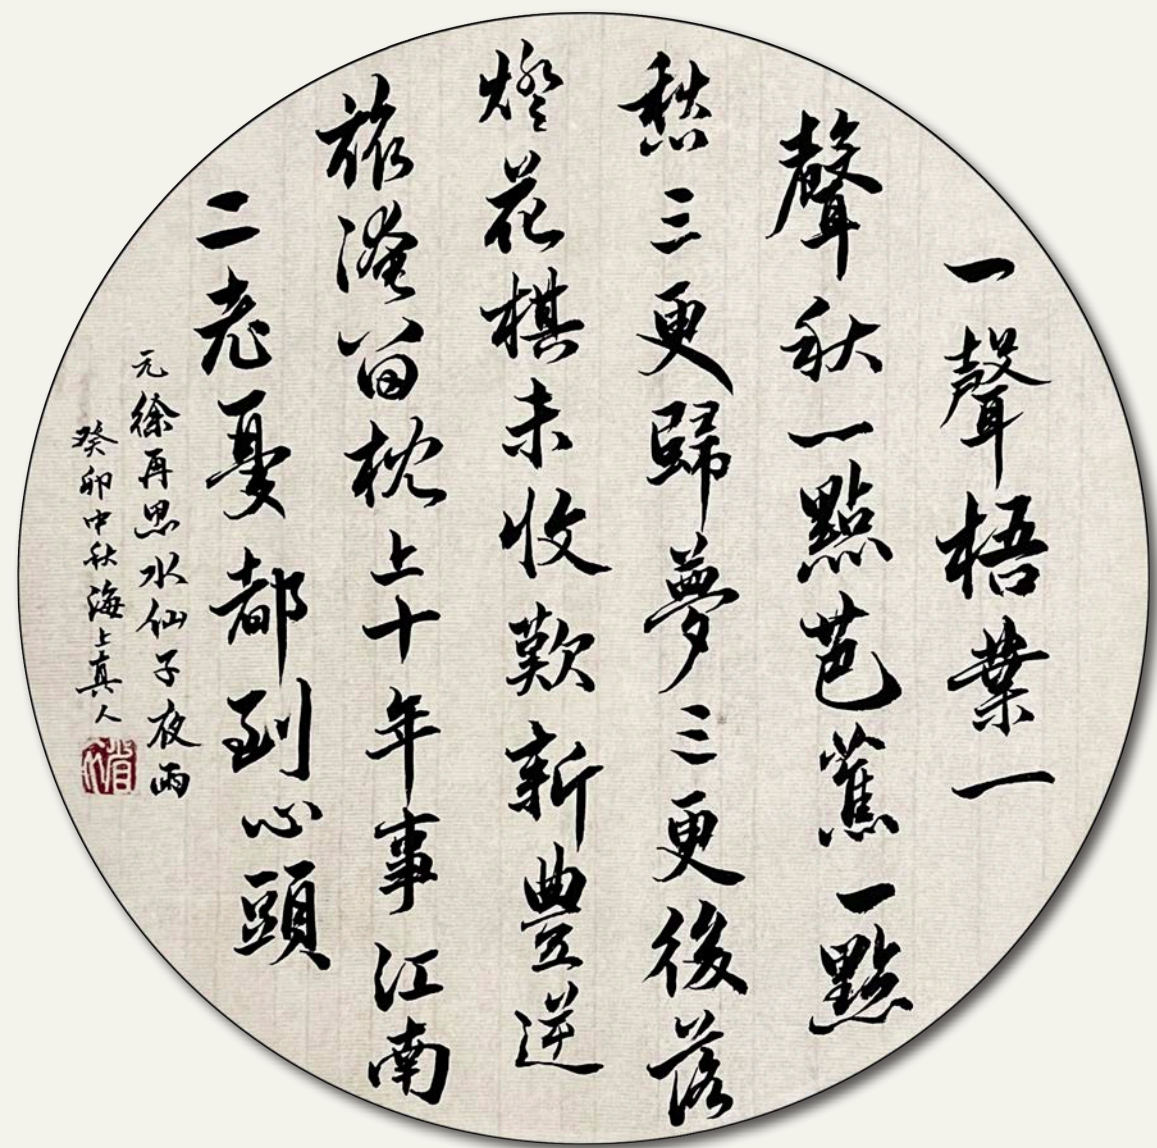 一聲梧葉一
聲秋一點芭蕉一點
愁三更歸夢三更後落
燈花棋未收歎新豐逆
旅淹留枕上十年事江南
二老憂都到心頭
元徐再思水仙子夜雨
癸卯中秋海上真人